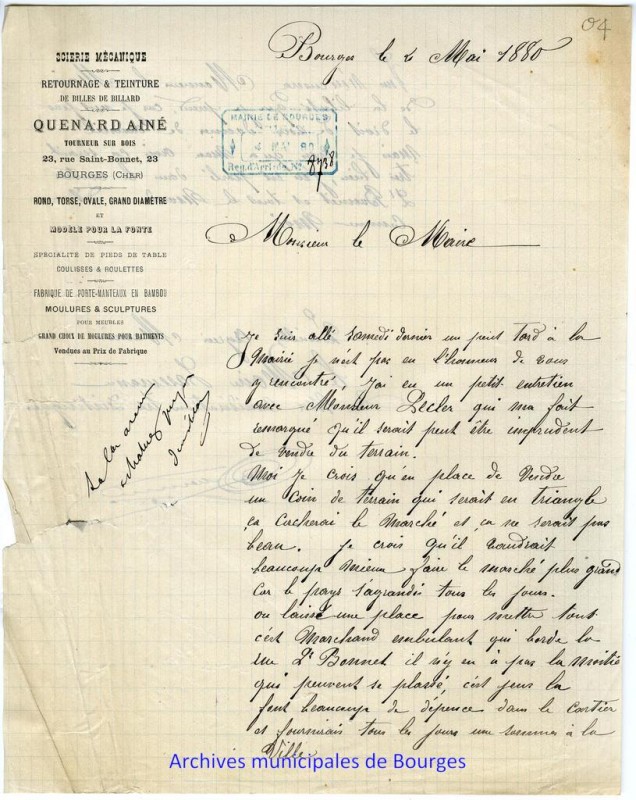 04
SCIERIE MÉCANIQUE
RETOURNAGE & TEINTURE
DE BILLES DE BILLARD
QUENARD AINÉ
TOURNEUR SUR BOIS
23, rue Saint-Bonnet, 23
BOURGES (CHER)
ROND, TORSE, OVALE, GRAND DIAMÈTRE
ET
MODÈLE POUR LA FONTE
SPÉCIALITÉ DE PIEDS DE TABLE
COULISSES & ROULETTES
FABRIQUE DE PORTE-MANTEAUX EN BAMBOU
MOULURES & SCULPTURES
POUR MEUBLES
GRAND CHOIX DE MOULURES POUR BATIMENTS
Vendues au Prix de Fabrique
Bourges le 2 Mai 1880
MAIRIE DE BOURGES
MAI 80
Reg. d'Arrivée N°
8738
Monsieur le Maire
Je suis allé samedi dernier un peint tard à la
Mairie je n'eit pas eu l'honneur de vous
y rencontré, J'ai eu un petit entretien
avec Monsieur Lecler qui ma fait
remarqué qu'il serait peut être imprudent
de vendre du terrain.
Moi Je crois qu'en place de Vendre
un Coin de terrain qui serait en triangle
ça Cacherai le Marché et ça ne serait pas
beau. Je crois qu'il vaudrait
beaucoup mieux faire le marché plus grand
Car le pays s'agrandi tous les jours.
ou laissé une place pour mettre tout
c'est Marchand embulant qui borde la
rue St Bonnet il n'y en à pas la moitié
qui peuvent se plassé, c'est jens la
font beaucoup de dépence dans le cartier
et fournirais tous les jours une somme à la
Ville.
Archives municipales de Bourges